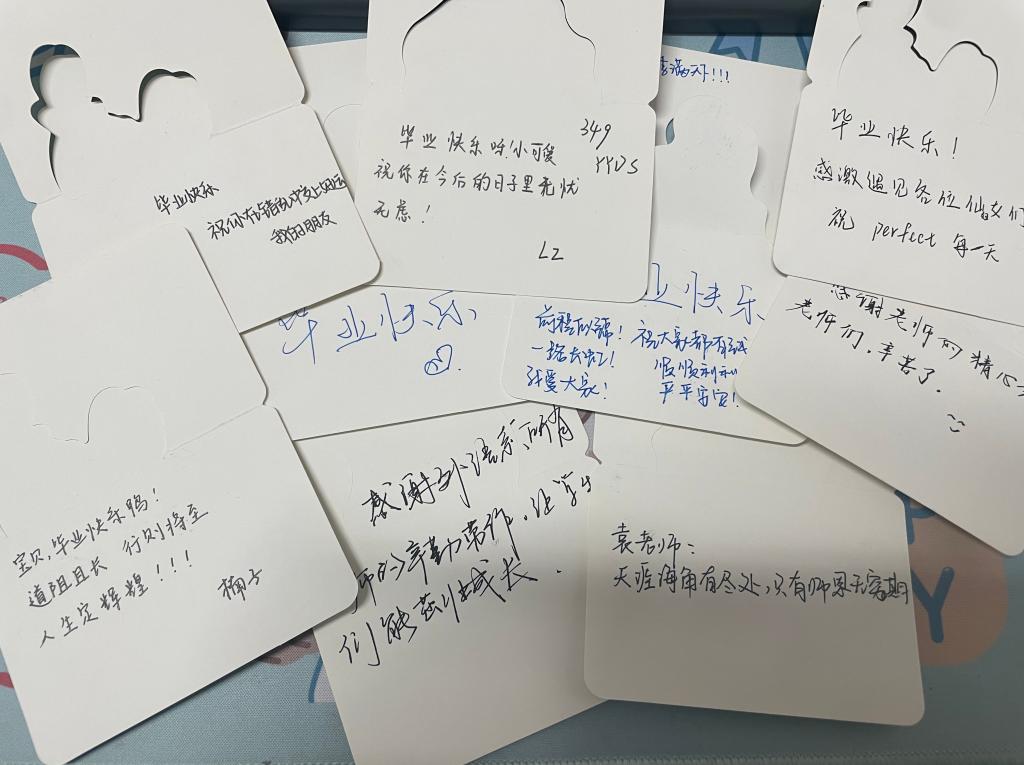 毕业快乐
祝你在错乱中交上好运
我的朋友
毕业快乐呀!小可爱
祝你在今后的日子里无忧
无虑!
LZ
349
YYDS
满天下!!!
毕业快乐!
感激遇见各位仙女们
祝 perfect 每一天
毕业快乐
业快乐
前程似锦!
一路长虹!
我爱大家!
祝大家都有
顺顺利利
平平安安!
感谢老师的精心
老师们,辛苦了.
宝贝,毕业快乐鸭!
道阻且长 行则将至
人生定辉煌!!!
桶子
感谢外语系所有
师的辛勤劳作,让学生
们能茁壮成长.
袁老师:
天涯海角有尽处,只有师恩无穷期